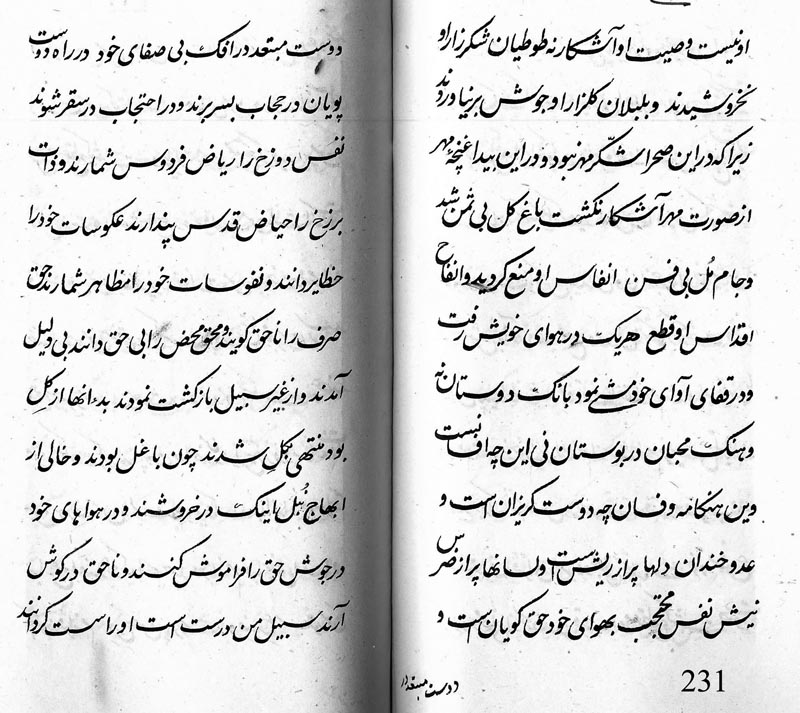 او نیست وصیت او آشکار نه طوطیان شکرزار او
نخروشیدند و بلبلان گلزار او جوش برنیاوردند
زیرا که در این صحرا شکر مهر نبود و در این بیدا غنچهٔ مهر
از صورت مهر آشکار نگشت باغ گل بی ثمن شد
و جام مُل بی فن انفاس او منع گردید و انفاح
اقداس او قطع هریک در هوای خویش رفت
و در قفای آوای خود مشی نمود بانک دوستان نه
و هنک محبان در بوستان نی این چه افسانست
وین هنکامه و فسان چه دوست کریزان است و
عدو خندان دلها پر از ریش است و لسانها پر از ضرس
نیش نفس محتجب بهوای خود حق کویان است و
دوست مبتعد در
231
دوست مبتعد در افک بی صفای خود در راه دوست
پویان در حجاب بسر برند و در احتجاب در سقر شوند
نفس دوزخ را ریاض فردوس شمارند و ذات
برزخ را حیاض قدس پندارند عکوسات خود را
حظایر دانند و نفوسات خود را مظاهر شمارند حق
صرف را ناحق کویند و محق محض را بی حق دانند بی دلیل
آمدند و از غیر سبیل بازکشت نمودند بدء انها از کِل
بود منتهی بکِل شدند چون با غل بودند و خالی از
ابهاج هُبل اینک در خروشند و در هواهای خود
در جوش حق را فراموش کنند و ناحق در کوش
آرند سبیل من درست است او راست کردانند